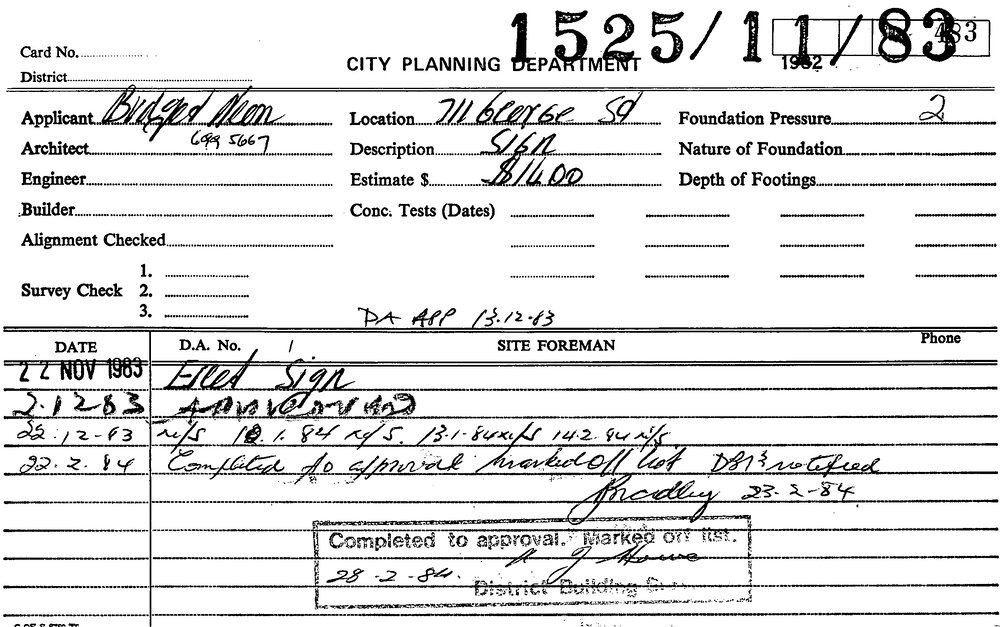 1525/11/83
483
Card No.
CITY PLANNING DEPARTMENT 1982
District
Applicant Budget Neon Location 711 George St Foundation Pressure 2
699 5667
Architect Description Sign Nature of Foundation
Engineer Estimate $ $1400 Depth of Footings
Builder Conc. Tests (Dates)
Alignment Checked
1.
Survey Check 2.
3.
DA APP 13.12.83
DATE D.A. No. / SITE FOREMAN Phone
22 NOV 1983 Erect Sign
2.12-83
22.12-83 n/s 18.1.84 n/s. 13.1-84 n/s 14.2.84 n/s.
22.2.84 Completed to approval marked off list DBI notified
Bradley 23-2-84
Completed to approval. Marked off list.
28-2-84. Howe
District Building